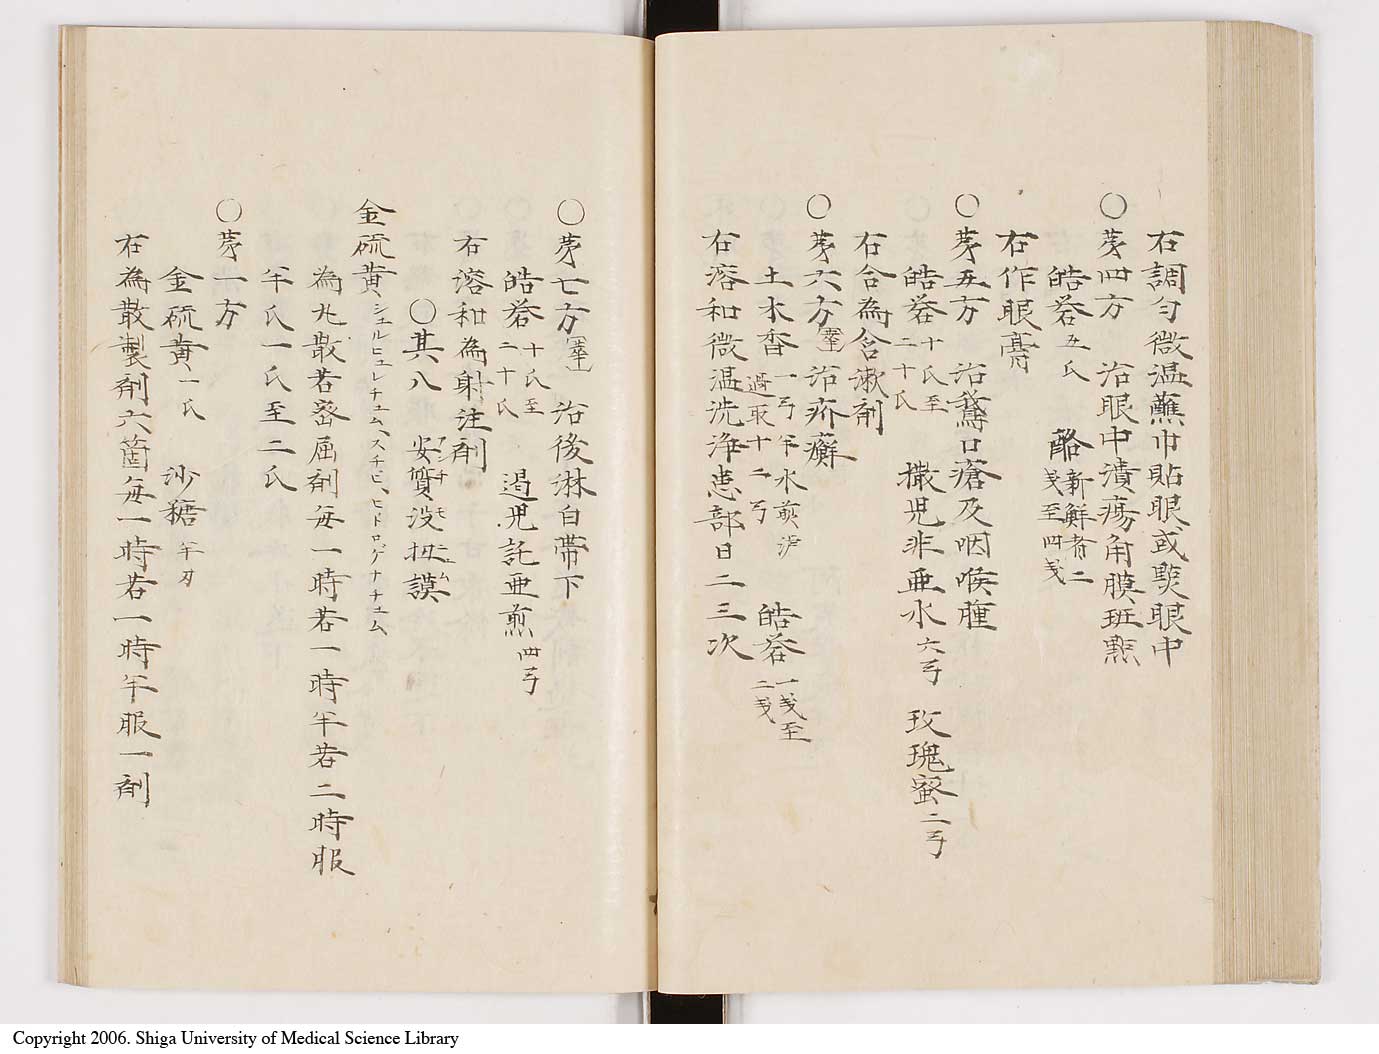 右調勻微温蘸巾貼眼或點眼中
○㐧四方　治眼中潰瘍角膜斑㸃
皓礬五氏　酪新鮮者二戔至四戔
右作眼膏
○㐧五方　治鵞口瘡及咽喉腫
皓礬十氏至二十氏　撒児非亜水六弓　玫瑰蜜二弓
右合為含漱剤
○㐧六方　治疥癬
土木香一弓半水煎沪過取十二弓　皓礬一戔至二戔
右溶和微温洗浄患部日二三次
○㐧七方　治後淋白帯下
皓礬十氏至二十氏　遏児託亜煎四弓
右溶和為射注剤
○其八　安質没扭謨アンチモニュム
金硫黄シュルヒュレチュム、スチビ、ヒドロゲナチュム
為丸散若密屈剤毎一時若一時半若二時服
半氏一氏至二氏
○㐧一方
金硫黄一氏　沙糖半刃
右為散製剤六箇毎一時若一時半服一剤
Copyright 2006. Shiga University of Medical Science Library